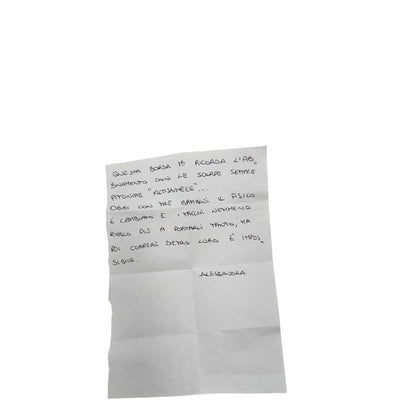 QUESTA BORSA MI RICORDA L'AB_
BINAMENTO CON LE SCARPE SEMPRE
PITONATE
OGGI CON TRE BAMBINI IL FISICO
È CAMBIATO E I TACCHI NEMMENO
RIESCO PIÙ A PORTARLI TANTO, MA
POI CORRERE DIETRO LORO È IMPOS_
SIBILE.
ALESSANDRA